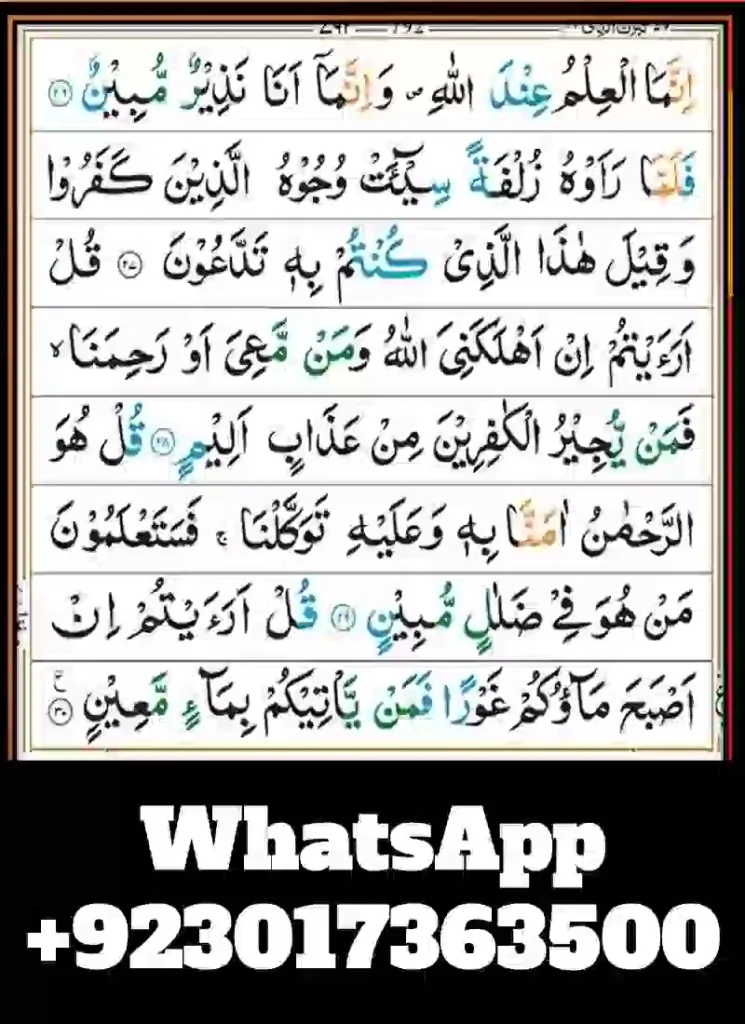 اِنَّمَا الْعِلْمُ عِنْدَ اللّٰهِ ۪ وَاِنَّمَاۤ اَنَا نَذِيْرٌ مُّبِيْنٌ ﴿۲۶﴾
فَلَمَّا رَاَوْهُ زُلْفَةً سِيْٓـَٔتْ وُجُوْهُ الَّذِيْنَ كَفَرُوْا
وَ قِيْلَ هٰذَا الَّذِىْ كُنْتُمْ بِهٖ تَدَّعُوْنَ ﴿۲۷﴾ قُلْ
اَرَءَيْتُمْ اِنْ اَهْلَكَنِىَ اللّٰهُ وَمَنْ مَّعِىَ اَوْ رَحِمَنَا ۙ
فَمَنْ يُّجِيْرُ الْكٰفِرِيْنَ مِنْ عَذَابٍ اَلِيْمٍ ﴿۲۸﴾ قُلْ هُوَ
الرَّحْمٰنُ اٰمَنَّا بِهٖ وَعَلَيْهِ تَوَكَّلْنَا ۚ فَسَتَعْلَمُوْنَ
مَنْ هُوَ فِىْ ضَلٰلٍ مُّبِيْنٍ ﴿۲۹﴾ قُلْ اَرَءَيْتُمْ اِنْ
اَصْبَحَ مَآؤُكُمْ غَوْرًا فَمَنْ يَّاْتِيْكُمْ بِمَآءٍ مَّعِيْنٍ ﴿۳۰﴾
WhatsApp
+923017363500